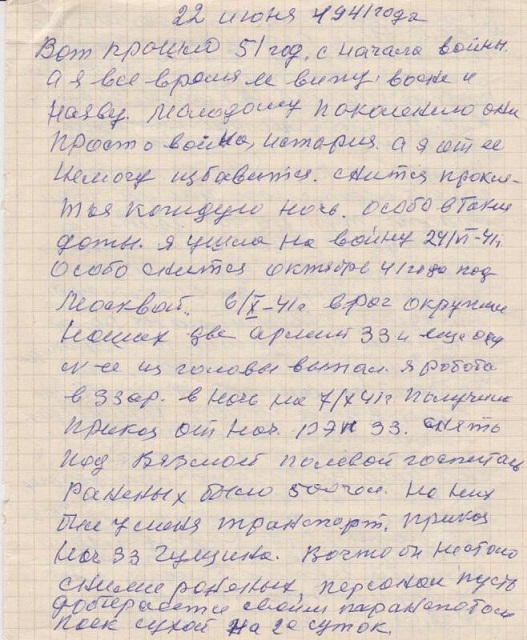 22 июня 1941 года
Вот прошло 51 год, с начала войны.
а я все время ее вижу во сне и
наяву. Молодому поколению они
просто война, история. а я от ее
немогу избавится. снится прокля-
тая каждую ночь. особо в такие
даты. я ушла на войну 24/VI-41г
особо снится октябрь 41 года под
Москвой. 6/X-41г враг окружил
наших две армии 33 и еще одну
из головы я работа
в 33 ар. в ночь на 7/X 41г получила
приказ от нач. 33. снять
под Вязмой полевой госпиталь
раненых было 500 чел. на них
был у меня транспорт. приказ
нач 33 Гулщина. Вочтобы нестало
сними раненых, персонал пусть
добирается своим
поек сухой на 2е суток.